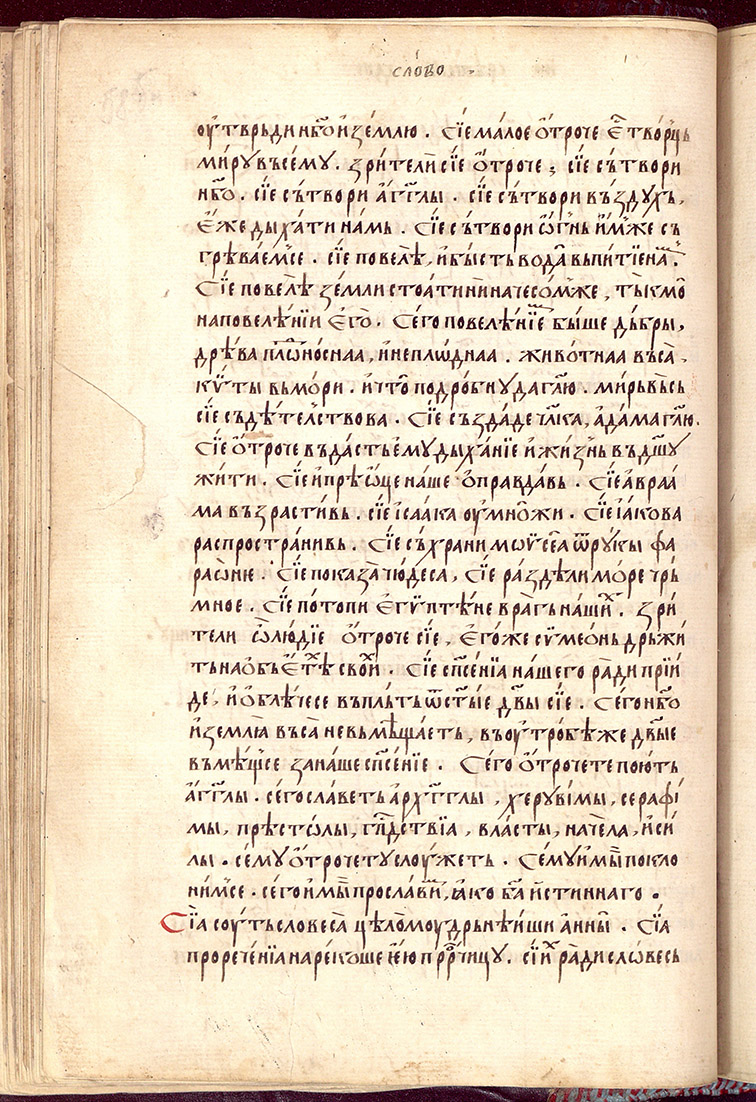 слово
оу҆тврьди нб҃о и҆ зе́млю . Сі́е ма́лое ѻ҆́троче є҆с̑ тво́рць
ми́ру въсе́му . зри́тели сі́е ѻ҆́троче ; сі́е сътво́ри
нб҃о . сі́е сътво́ри а҆́гг҃лы . сі́е сътво́ри въ́здухъ ,
є҆́же дыха́ти на́мь . Сі́е сътво́ри ѻ҆́гн҄ь и҆́мже съ
грѣва́емсе . сі́е повелѣ̀ , и҆ бы́сть вода̀ въ пи́тїе на̑м .
Сі́е повелѣ̀ зе́мли стоа́ти ни на чесо́мже , тъ́кмо
на повелѣ́нїи є҆го̀ . Се́го повелѣ́нїем бы́ше дь́бры ,
дрѣ́ва плѡдоно́снаа , и҆ непло́днаа . живо́тнаа въса̀ ,
кѵ́ты вь мо́ри . и҆ что̀ подро́бну да гл҃ю . ми́рь вь́сь
сі́е съдѣ́телствова . Сі́е създа́де чл҃ка , а҆да́ма гл҃ю .
Сі́е ѻ҆́троче въда́сть є҆му̀ дыха́нїе и҆ жи́знь въ дш҃у
жи́ти . Сі́е и҆ прѣѡ҆́це на́ше ѻ҆правда́вь . Сі́е а҆враа́
ма възрасти́вь . сі́е і҆саа́ка оу҆мно́жи . Сі́е і҆а́кова
распростра́нивь . Сі́е съхрани̑ мѡѷсе́а ѿ ру́кы фа
раѡ́ню . Сі́е показа̀ чюдеса̀ , Сі́е ра́здѣли мо́ре чрь
мное . Сі́е пото́пи є҆гѵ́птѣне враг҄ь на́ших . Зри́
тели ѽ лю́дїе ѻ҆́троче сі́е , є҆го́же сѷмео́нь дрьжи́
ть на ѻ҆бѣе҆тх̑ѣ свои́х . Сі́е сп҃се́нїа на́шего ра́ди прїи́
де , и҆ ѻ҆бле́чесе въ плъ́ть ѿ ст҃ы́е дв҃ы сі́е . Се́го нб҃о
и҆ землꙗ̀ въса̀ не вьмѣща́еть , въ оу҆тро́бѣ же дв҃ы́е
въмѣ́щсе за на́ше сп҃се́нїе . Се́го ѻ҆́трочете пою́ть
а҆́гг҃лы . се́го сла́веть а҆рха́гг҃лы , херуві́мы , серафі́
мы , прѣсто́лы , гп҃дствїа , вла́сты , на́чела , и҆ си́
лы . се́му ѻ҆́трочету слоу́жеть . Се́му и҆ мы̀ покло
ни́мсе . се́го и҆ мы̀ просла́вим , ꙗ҆́ко ба҃ и҆́стиннаго .
Сі́а соу́ть словеса̀ цѣломоу́дрьнѣиши а҆́нны̑ . Сі́а
прорече́нїа нареко́ше ю҆̀ прⷪ҇рчицу . сі́их ра́ди сло́весь